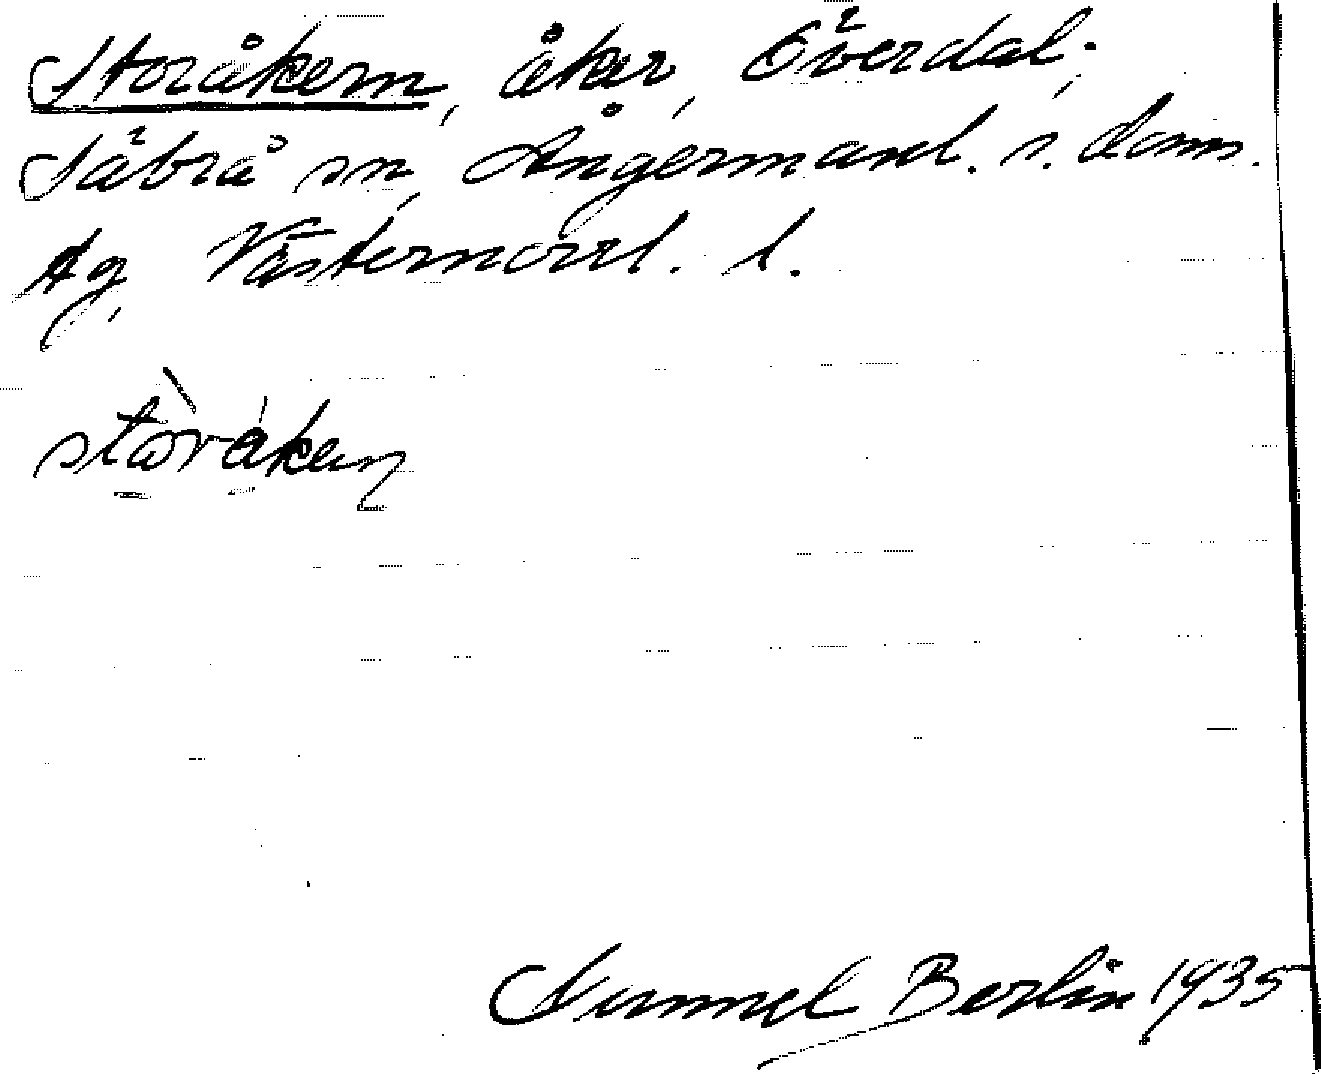 Storåkern, åker, Överdal,
Säbrå sn, Ångermanl. s. dom
sg, Västernorrl. l.
stòråken
Berlin 1935